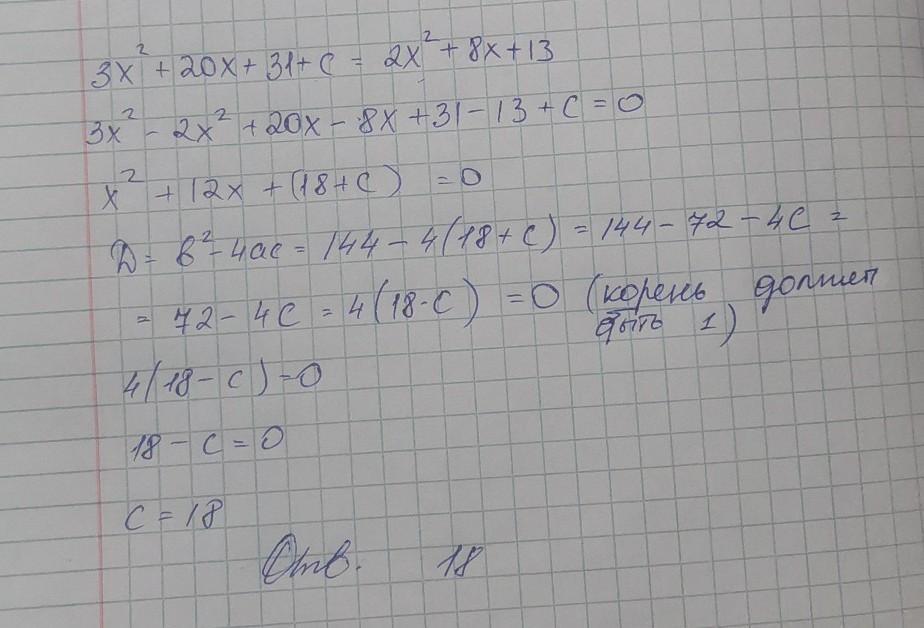 3x² + 20x + 31 + c = 2x² + 8x + 13
3x² - 2x² + 20x - 8x + 31 - 13 + c = 0
x² + 12x + (18 + c) = 0
D = b² - 4ac = 144 - 4(18 + c) = 144 - 72 - 4c =
= 72 - 4c = 4(18 - c) = 0 (корень должен
быть 1)
4(18 - c) = 0
18 - c = 0
c = 18
Отв. 18